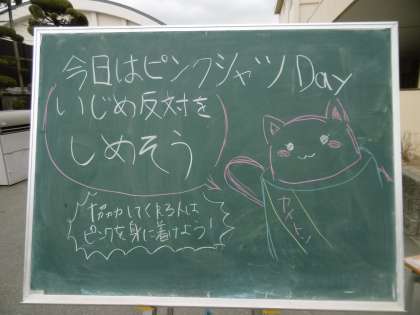 今日はピンクシャツDay
いじめ反対を
しめそう
協力してくれる人は
ピンクを身に着けよう!